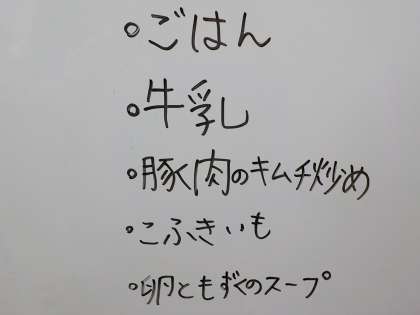 •ごはん
•牛乳
•豚肉のキムチ炒め
•こふきいも
•卵ともずくのスープ